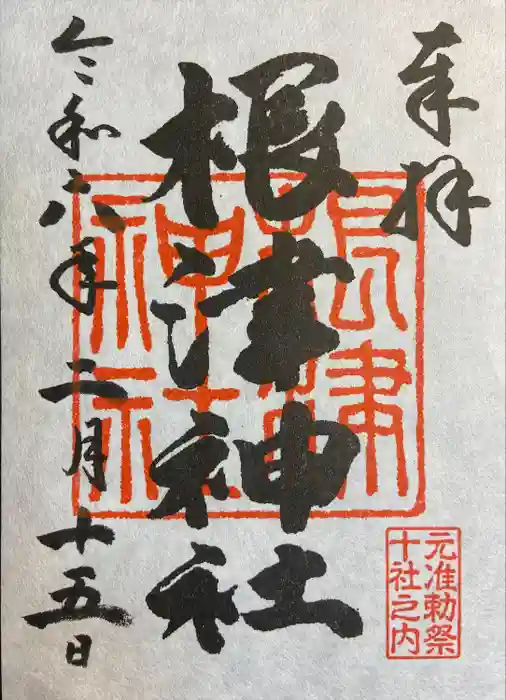 奉拝
根津神社
根津神社
令和六年二月十五日
元准勅祭
十社之内